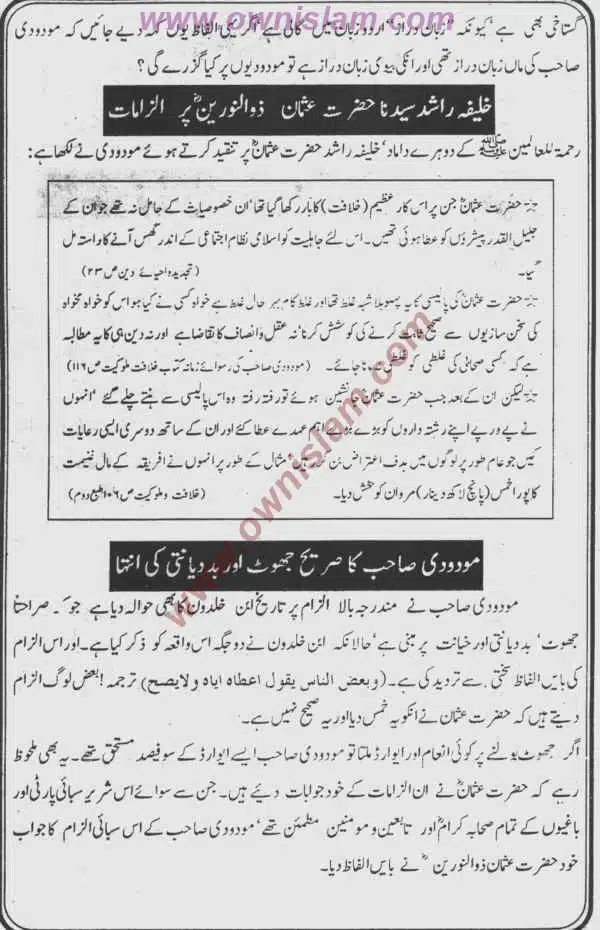 www.ownislam.com
گستاخی بھی ہے، کیونکہ "زبان دراز" اردو زبان میں گالی ہے اگر یہی الفاظ یوں کہہ دیے جائیں کہ مودودی
صاحب کی ماں زبان دراز تھی اور انکی بیوی زبان دراز ہے تو مودودیوں پر کیا گزرے گی؟
خلیفہ راشد سیدنا حضرت عثمان ذوالنورینؓ پر الزامات
رحمۃ للعالمین ﷺ کے دوہرے داماد، خلیفہ راشد حضرت عثمانؓ پر تنقید کرتے ہوئے مودودی نے لکھا ہے:
☆ حضرت عثمانؓ جن پر اس کار عظیم (خلافت) کا بار رکھا گیا تھا، ان خصوصیات کے حامل نہ تھے جو ان کے
جلیل القدر پیشرؤں کو عطا ہوئی تھیں۔ اس لئے جاہلیت کو اسلامی نظام اجتماعی کے اندر گھس آنے کا راستہ مل
گیا۔ (تجدید و احیائے دین ص ۲۳)
☆ حضرت عثمانؓ کی پالیسی کا یہ پہلو بلاشبہ غلط تھا اور غلط کام بہر حال غلط ہے خواہ کسی نے کیا ہو اس کو خواہ مخواہ
کی سخن سازیوں سے صحیح ثابت کرنے کی کوشش کرنا، نہ عقل و انصاف کا تقاضا ہے اور نہ دین ہی کا یہ مطالبہ
ہے کہ کسی صحابی کی غلطی کو غلطی نہ مانا جائے۔ (مودودی صاحب کی رسوائے زمانہ کتاب خلافت ملوکیت ص ۱۱۶)
☆ لیکن ان کے بعد جب حضرت عثمان جانشین ہوئے تو رفتہ رفتہ وہ اس پالیسی سے ہٹتے چلے گئے، انہوں
نے پے در پے اپنے رشتہ داروں کو بڑے بڑے اہم عہدے عطا کئے اور ان کے ساتھ دوسری ایسی رعایات
کیں جو عام طور پر لوگوں میں ہدف اعتراض بن کر رہیں، مثال کے طور پر انہوں نے افریقہ کے مال غنیمت
کا پورا خمس (پانچ لاکھ دینار) مروان کو بخش دیا۔ (خلافت و ملوکیت ص ۱۰۶ طبع دوم)
مودودی صاحب کا صریح جھوٹ اور بددیانتی کی انتہا
مودودی صاحب نے مندرجہ بالا الزام پر تاریخ ابن خلدون کا بھی حوالہ دیا ہے جو صراحتا
جھوٹ، بددیانتی اور خیانت پر مبنی ہے، حالانکہ ابن خلدون نے دو جگہ اس واقعہ کو ذکر کیا ہے۔ اور اس الزام
کی بایں الفاظ سختی سے تردید کی ہے۔ (وبعض الناس یقول اعطاہ ایاہ ولا یصح) ترجمہ! بعض لوگ الزام
دیتے ہیں کہ حضرت عثمان نے انکو یہ خمس دیا اور یہ صحیح نہیں ہے۔
اگر جھوٹ بولنے پر کوئی انعام اور ایوارڈ ملتا تو مودودی صاحب ایسے ایوارڈ کے سو فیصد مستحق تھے۔ یہ بھی ملحوظ
رہے کہ حضرت عثمانؓ نے ان الزامات کے خود جوابات دیئے ہیں۔ جن سے سوائے اس شریر سبائی پارٹی اور
باغیوں کے تمام صحابہ کرامؓ اور تابعین و مومنین مطمئن تھے، مودودی صاحب کے اس سبائی الزام کا جواب
خود حضرت عثمان ذوالنورینؓ نے بایں الفاظ دیا۔
www.ownislam.com